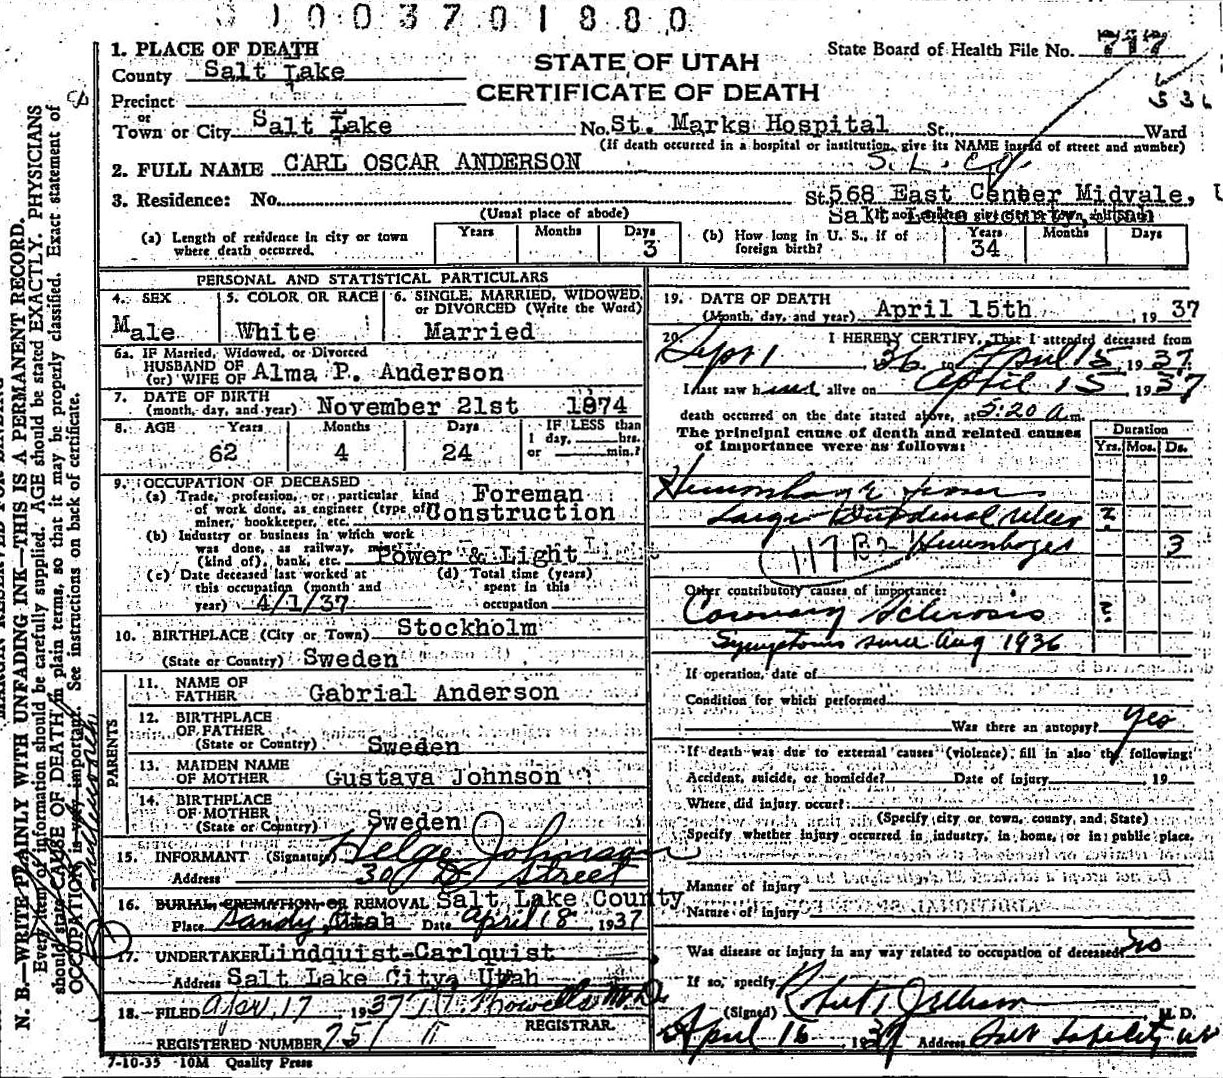 1003701880
1. PLACE OF DEATH
County Salt Lake
Precinct
or
Town or City Salt Lake
STATE OF UTAH
CERTIFICATE OF DEATH
State Board of Health File No. 717
No. St. Marks Hospital St. Ward
(If death occurred in a hospital or institution, give its NAME instead of street and number)
2. FULL NAME CARL OSCAR ANDERSON
3. Residence: No. St. 568 East Center Midvale, U
(Usual place of abode)
(a) Length of residence in city or town where death occurred. Years Months Days 3
(b) How long in U. S., if of foreign birth? Years 34 Months Days
PERSONAL AND STATISTICAL PARTICULARS
4. SEX Male
5. COLOR OR RACE White
6. SINGLE, MARRIED, WIDOWED, or DIVORCED (Write the Word) Married
6a. IF Married, Widowed, or Divorced
HUSBAND OF
(or) WIFE OF Alma P. Anderson
7. DATE OF BIRTH
(month, day, and year) November 21st 1874
8. AGE Years 62 Months 4 Days 24 IF LESS than 1 day, hrs. or min.?
9. OCCUPATION OF DECEASED
(a) Trade, profession, or particular kind of work done, as engineer (type of) miner, bookkeeper, etc. Foreman Construction
(b) Industry or business in which work was done, as railway, (kind of), bank, etc. Power & Light
(c) Date deceased last worked at this occupation (month and year) 4/1/37
(d) Total time (years) spent in this occupation
10. BIRTHPLACE (City or Town) Stockholm
(State or Country) Sweden
PARENTS
11. NAME OF FATHER Gabrial Anderson
12. BIRTHPLACE OF FATHER
(State or Country) Sweden
13. MAIDEN NAME OF MOTHER Gustava Johnson
14. BIRTHPLACE OF MOTHER
(State or Country) Sweden
15. INFORMANT (Signature) Helge Johnson
Address 30 D Street
16. BURIAL, CREMATION OR REMOVAL Salt Lake County
Place Sandy, Utah Date April 18, 1937
17. UNDERTAKER Lindquist-Carlquist
Address Salt Lake City, Utah
18. FILED Apr. 17 1937 M.D.
REGISTRAR.
REGISTERED NUMBER 751
7-10-35 10M Quality Press
19. DATE OF DEATH
(Month, day, and year) April 15th, 1937
20. I HEREBY CERTIFY, That I attended deceased from
Sept 1 36 to April 15 1937
I last saw him alive on April 15, 1937
death occurred on the date stated above, at 5:20 a.m.
The principal cause of death and related causes of importance were as follows:
Duration
Yrs. Mos. Ds.
Hemorrhage from
Large Duodenal Ulcer ?
117 B2 Hemorrhages 3
Other contributory causes of importance:
Coronary Sclerosis ?
Symptoms since Aug 1936
If operation, date of
Condition for which performed
Was there an autopsy? yes
If death was due to external causes (violence) fill in also the following:
Accident, suicide, or homicide? Date of injury 19
Where did injury occur?
(Specify city or town, county, and State)
Specify whether injury occurred in industry, in home, or in public place.
Manner of injury
Nature of injury
Was disease or injury in any way related to occupation of deceased? no
If so, specify
(Signed) M. D.
April 16 1937 Address
N. B.—WRITE PLAINLY WITH UNFADING INK—THIS IS A PERMANENT RECORD.
Every item of information should be carefully supplied. AGE should be stated EXACTLY. PHYSICIANS
should state CAUSE OF DEATH in plain terms, so that it may be properly classified. Exact statement of
OCCUPATION is very important. See instructions on back of certificate.